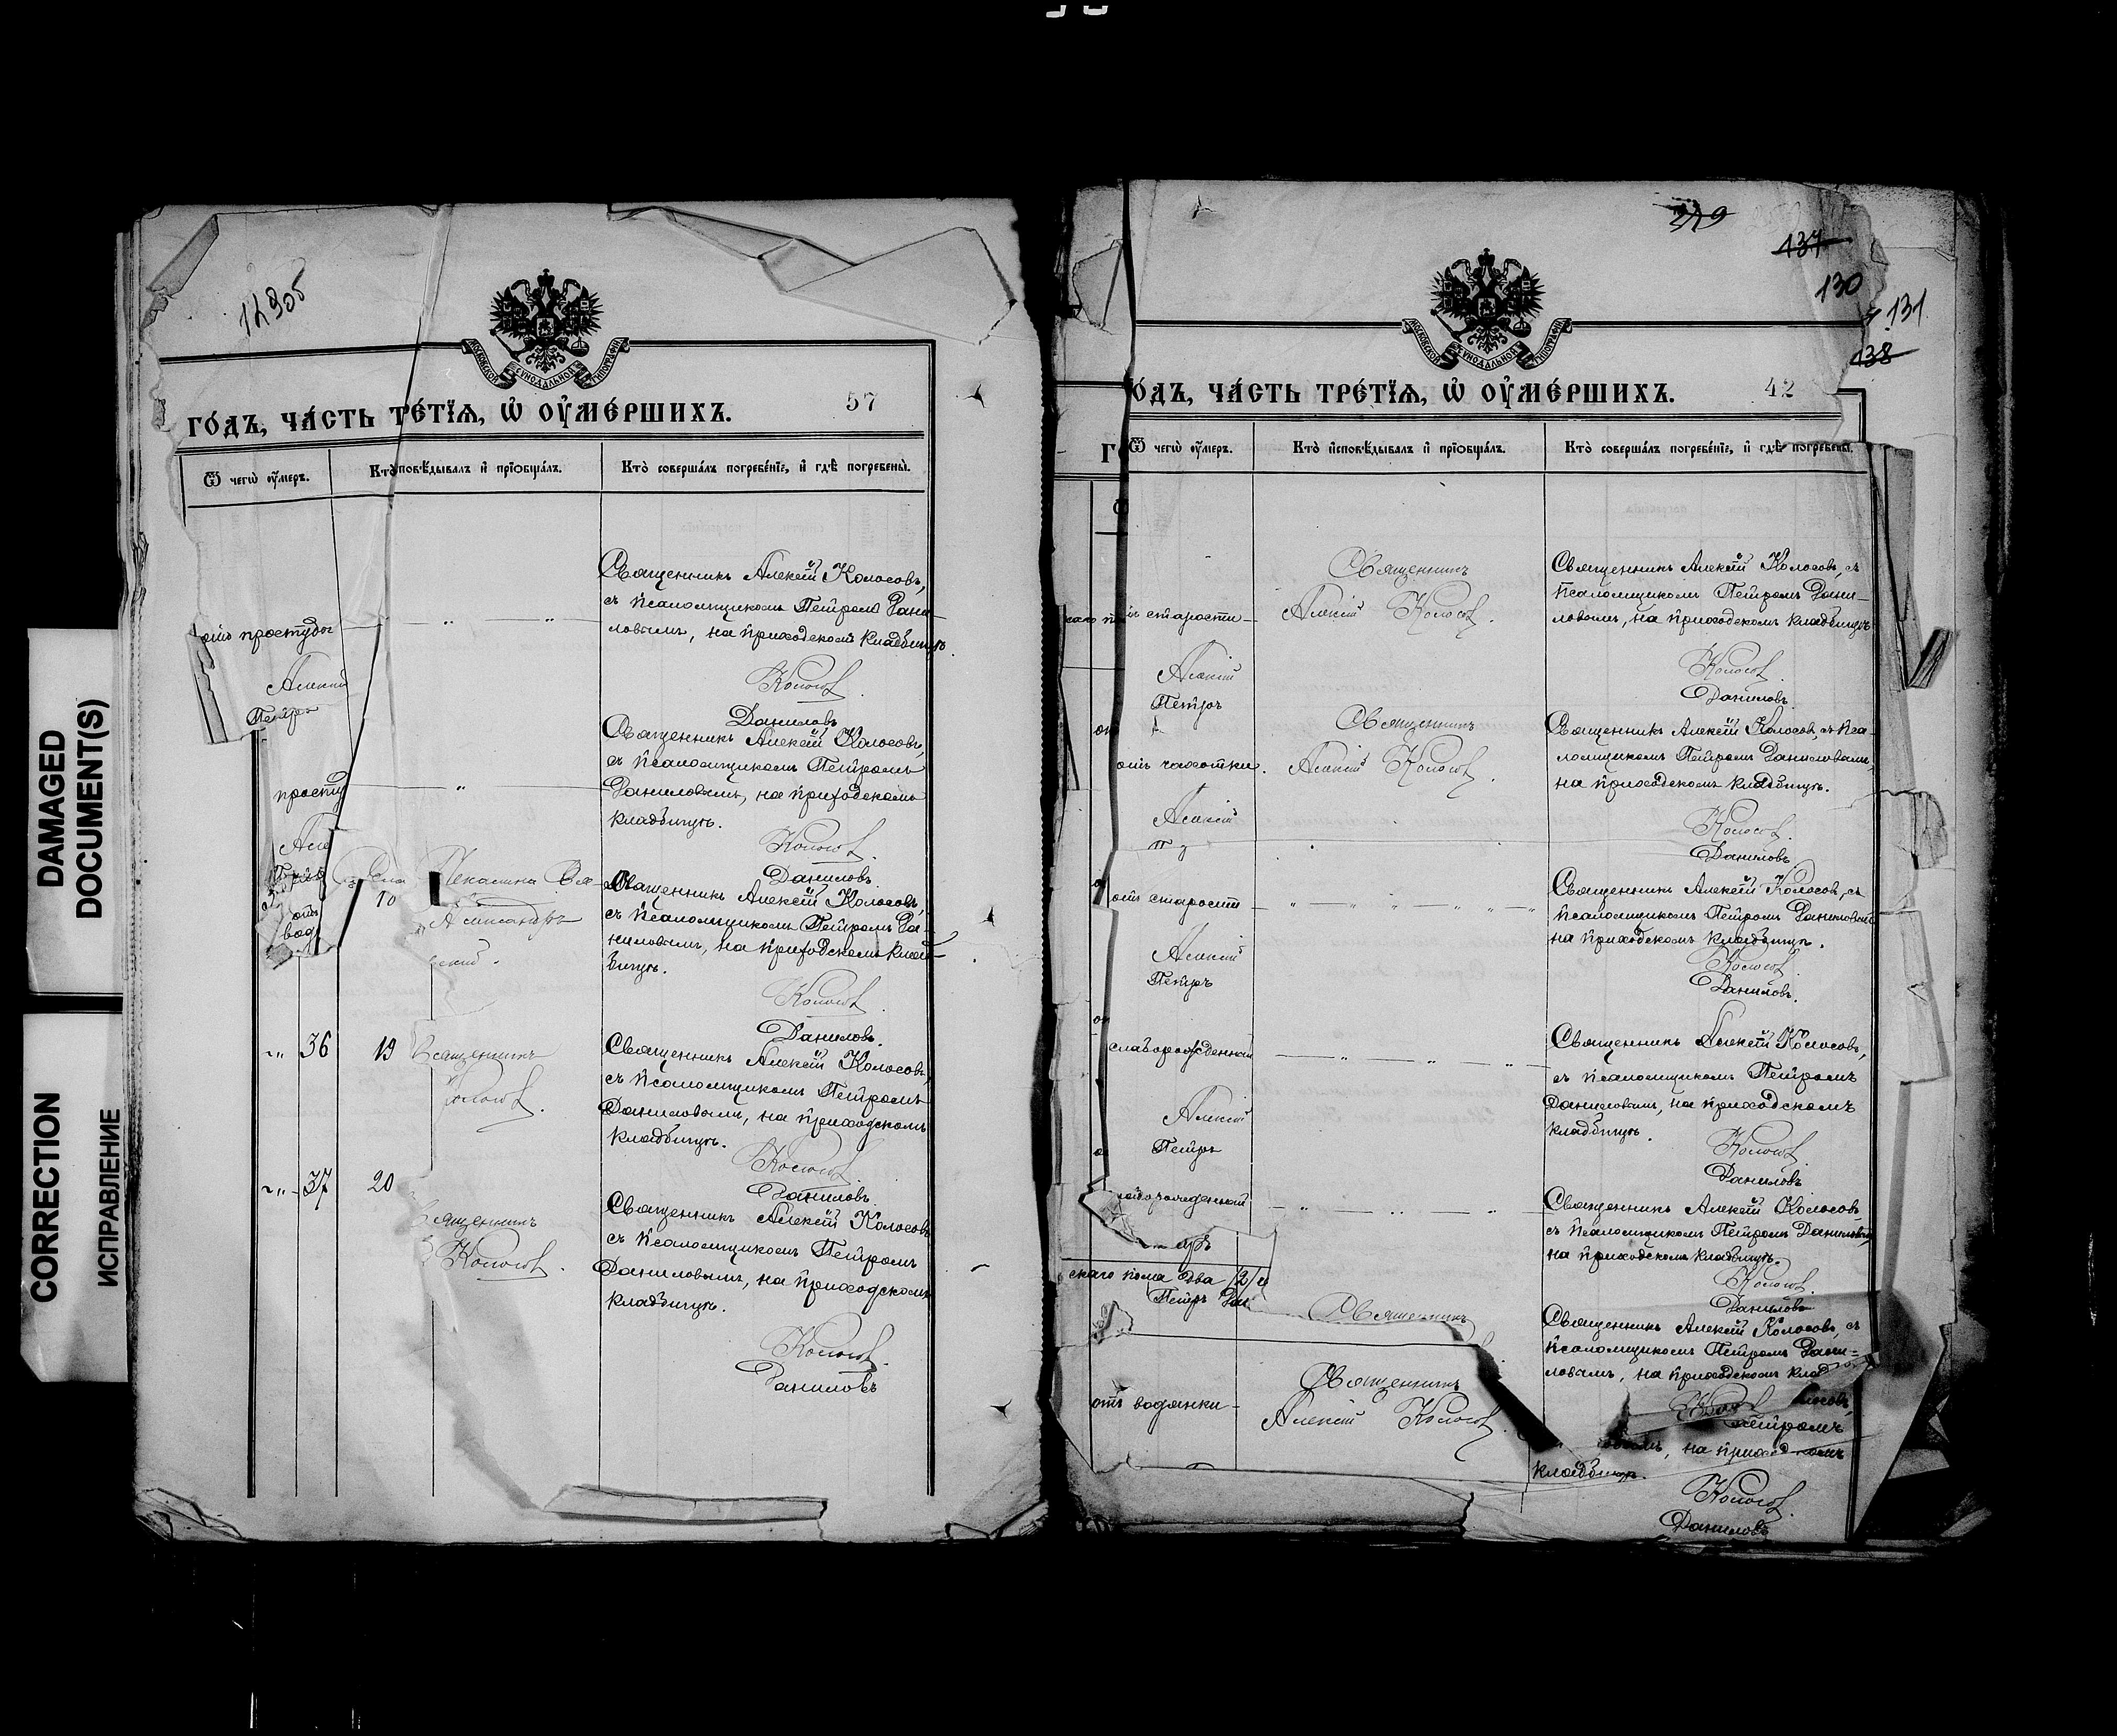 DAMAGED
DOCUMENT(S)
CORRECTION
ИСПРАВЛЕНИЕ
57
ГО́ДЪ, ЧА́СТЬ ТРЕ́ТЇѦ, Ѡ҆ ОУ҆МЕ́РШИХЪ.
Ѿ чегѡ̀ оу҆́меръ.
Кто̀ и҆сповѣ́дывалъ и҆ прїѡбща́лъ.
Кто̀ соверша́лъ погребе́нїе, и҆ гдѣ̀ погребены̀.
отъ простуды
Священникъ Алексѣй Колосовъ,
съ псаломщикомъ Петромъ Дани-
ловымъ, на приходскомъ кладбищѣ.
Алексѣй
Петръ
Колосов
Даниловъ
Священникъ Алексѣй Колосовъ,
съ псаломщикомъ Петромъ
Даниловымъ, на приходскомъ
кладбищѣ.
Колосов
Даниловъ.
Священникъ Алексѣй Колосовъ,
съ псаломщикомъ Петромъ Да-
ниловымъ, на приходскомъ клад-
бищѣ.
Александръ
Колосов
Даниловъ.
36 19 Священникъ
Колосов.
Священникъ Алексѣй Колосовъ,
съ псаломщикомъ Петромъ
Даниловымъ, на приходскомъ
кладбищѣ.
Колосов
Даниловъ
37 20
Священникъ
Колосов.
Священникъ Алексѣй Колосовъ
съ псаломщикомъ Петромъ
Даниловымъ, на приходскомъ
кладбищѣ.
Колосов.
Даниловъ
319
137
130
131
138
42
О́ДЪ, ЧА́СТЬ ТРЕ́ТЇѦ, Ѡ҆ ОУ҆МЕ́РШИХЪ.
Ѿ чегѡ̀ оу҆́меръ.
Кто̀ и҆сповѣ́дывалъ и҆ прїѡбща́лъ.
Кто̀ соверша́лъ погребе́нїе, и҆ гдѣ̀ погребены̀.
старости
Священникъ
Алексѣй Колосов.
Священникъ Алексѣй Колосовъ, съ
псаломщикомъ Петромъ Дани-
ловымъ, на приходскомъ кладбищѣ
Алексѣй
Петръ
Колосов.
Даниловъ
отъ чахотки.
Священникъ
Алексѣй Колосов.
Священникъ Алексѣй Колосовъ, съ пса-
ломщикомъ Петромъ Даниловымъ,
на приходскомъ кладбищѣ.
Алексѣй
Колосов.
Даниловъ.
отъ старости
Священникъ Алексѣй Колосовъ, съ
псаломщикомъ Петромъ Даниловымъ
на приходскомъ кладбищѣ.
Алексѣй
Петръ
Колосов.
Даниловъ.
слаборожденный
Священникъ Алексѣй Колосовъ,
съ псаломщикомъ Петромъ
Даниловымъ, на приходскомъ
кладбищѣ.
Алексѣй
Петръ
Колосов.
Даниловъ
Священникъ Алексѣй Колосовъ
съ псаломщикомъ Петромъ Даниловымъ,
на приходскомъ кладбищѣ.
Колосов.
Даниловъ
два (2)
Петръ
Священникъ
Священникъ Алексѣй Колосовъ, съ
псаломщикомъ Петромъ Дани-
ловымъ, на приходскомъ
отъ водянки
Священникъ
Алексѣй Колосов
Петромъ
кладбищѣ.
Колосов.
Даниловъ